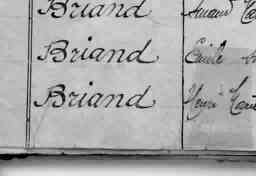 Briand Armand
Briand Emile
Briand Henri